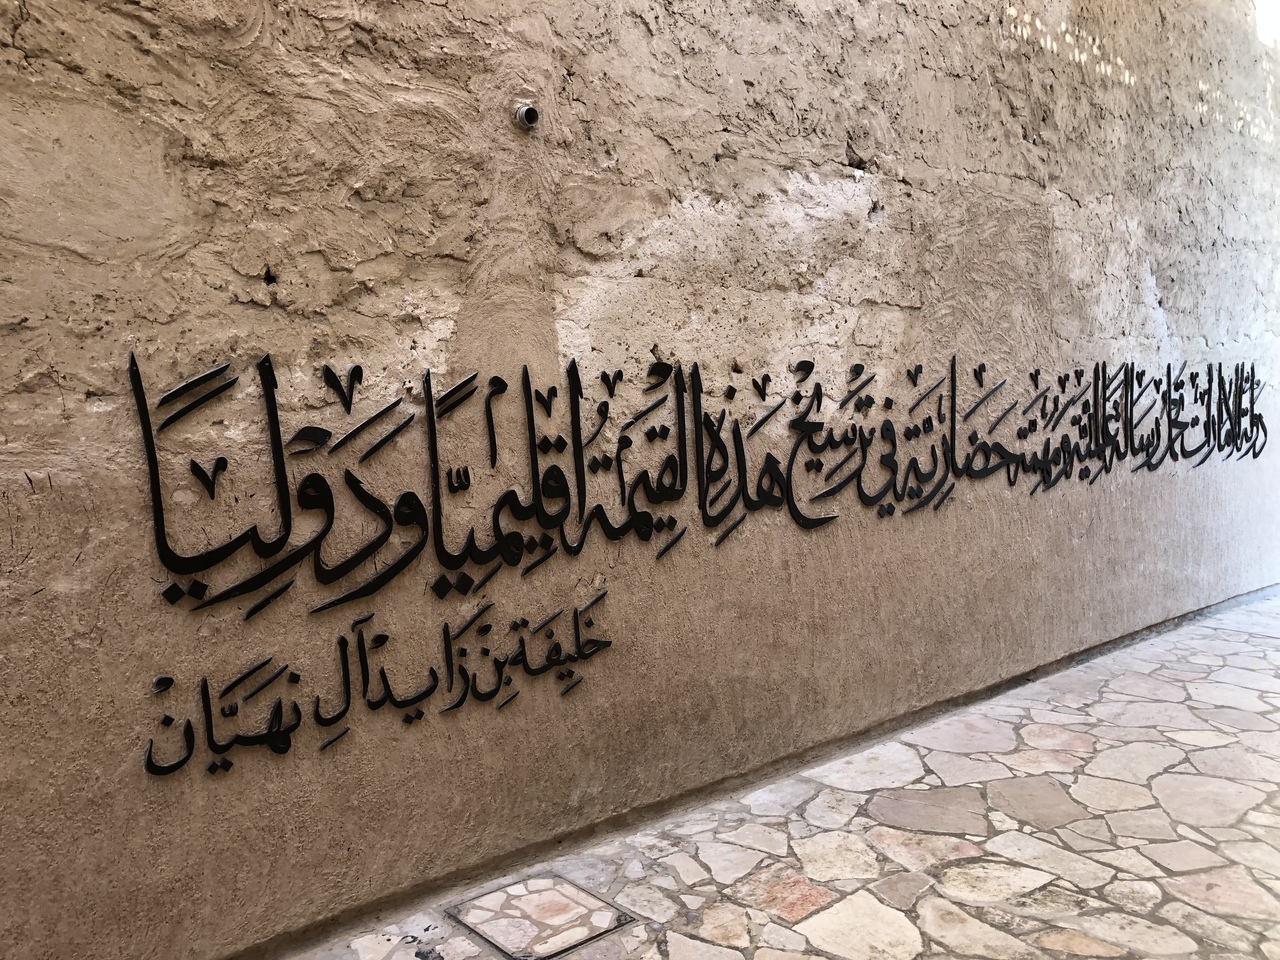 دولة الإمارات تحمل رسالة عالمية ومهمة حضارية في ترسيخ هذه القيمة اقليميًا ودوليًا
خليفة بن زايد آل نهيان